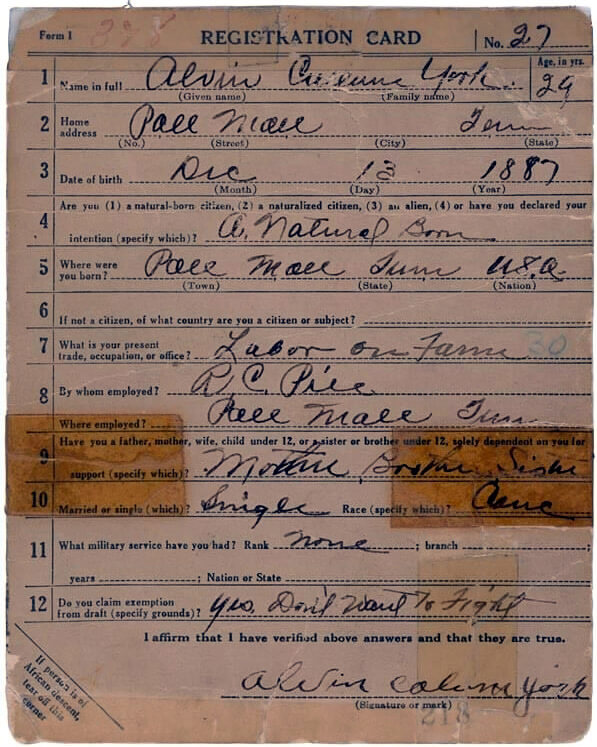 Form 1 378 REGISTRATION CARD No. 27
1 Name in full Alvin Cullium York. Age, in yrs. 29
(Given name) (Family name)
2 Home address Pall Mall Tenn
(No.) (Street) (City) (State)
3 Date of birth Dec 13 1887
(Month) (Day) (Year)
Are you (1) a natural-born citizen, (2) a naturalized citizen, (3) an alien, (4) or have you declared your
4 intention (specify which)? A. Natural Born
5 Where were you born? Pall Mall Tenn U.S.A.
(Town) (State) (Nation)
6 If not a citizen, of what country are you a citizen or subject?
7 What is your present trade, occupation, or office? Labor on Farm 30
8 By whom employed? R. C. Pile
Where employed? Pall Mall Tenn
Have you a father, mother, wife, child under 12, or a sister or brother under 12, solely dependent on you for
9 support (specify which)? Mother, Brother, Sister
10 Married or single (which)? Single Race (specify which)? Cauc
11 What military service have you had? Rank none ; branch ;
years ; Nation or State
12 Do you claim exemption from draft (specify grounds)? Yes. Don't Want To Fight
I affirm that I have verified above answers and that they are true.
Alvin Cullium York
(Signature or mark)
218
If person is of
African descent,
tear off this
corner